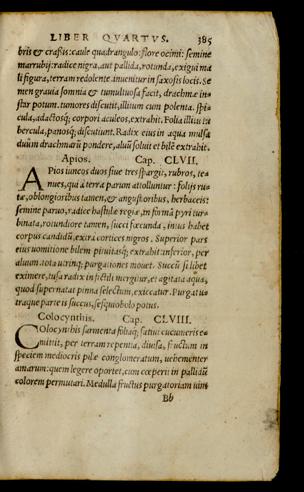 LIBER QVARTVS. 385
bris & crassis: caule quadrangulo: flore ocimi: semine
marrubij: radice nigra, aut pallida, rotunda, exigui ma
li figura, terram redolente. inuenitur in saxosis locis. Se
men grauia somnia & tumultuosa facit, drachmæ in-
star potum. tumores discutit, illitum cum polenta. spi-
cula, adactosq; corpori aculeos, extrahit. Folia illita tu
bercula, panosq; discutiunt. Radix eius in aqua mulsa
duûm drachmarũ pondere, aluũ soluit et bilē extrahit.
Apios. Cap. CLVII.
APios iuncos duos fiue tres spargit, rubros, te-
nues, qui à terra parum attolluntur: folijs ru-
tæ, oblongioribus tamen, & angustioribus, herbaceis:
semine paruo, radice hastulæ regiæ, in formã pyri tur-
binata, rotundiore tamen, succi fœcunda, intus habet
corpus candidũ, extra cortices nigros. Superior pars
eius uomitione bilem pituitasq; extrahit: inferior, per
aluum. tota utrinq; purgationes mouet. Succũ si libet
eximere, tusa radix in fictili mergitur, et agitata aqua,
quod supernatat pinna selectum, exiccatur. Purgat u-
traque parte is succus, sesquiobolo potus.
Colocynthis. Cap. CLVIII.
COlocynthis sarmenta foliaq; satiui cucumeris e-
mittit, per terram repentia, diuisa, fructum in
speciem mediocris pilæ conglomeratum, uehementer
amarum: quem legere oportet, cum cœperit in pallidũ
colorem permutari. Medulla fructus purgatoriam uim
Bb